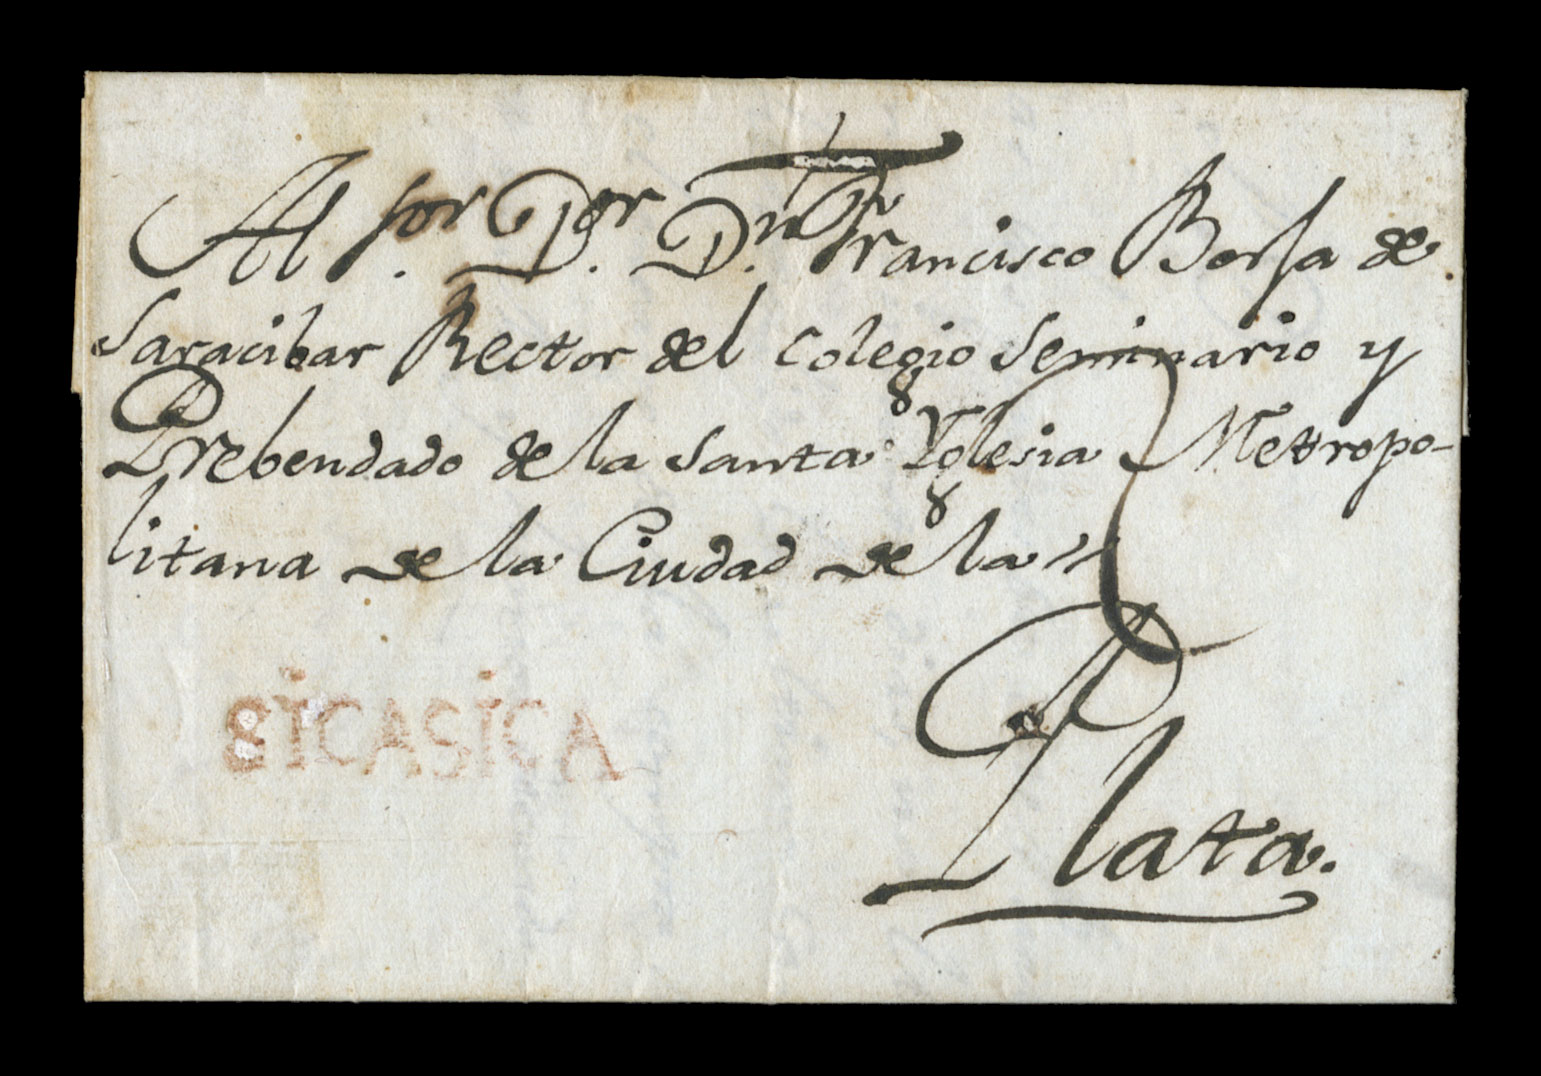 Al Sor. Dor. Dn. Francisco Borja de
Saracibar Rector del Colegio Seminario y
Prebendado de la Santa Yglesia Metropo-
litana de la Ciudad de la
Plata.
SICASICA